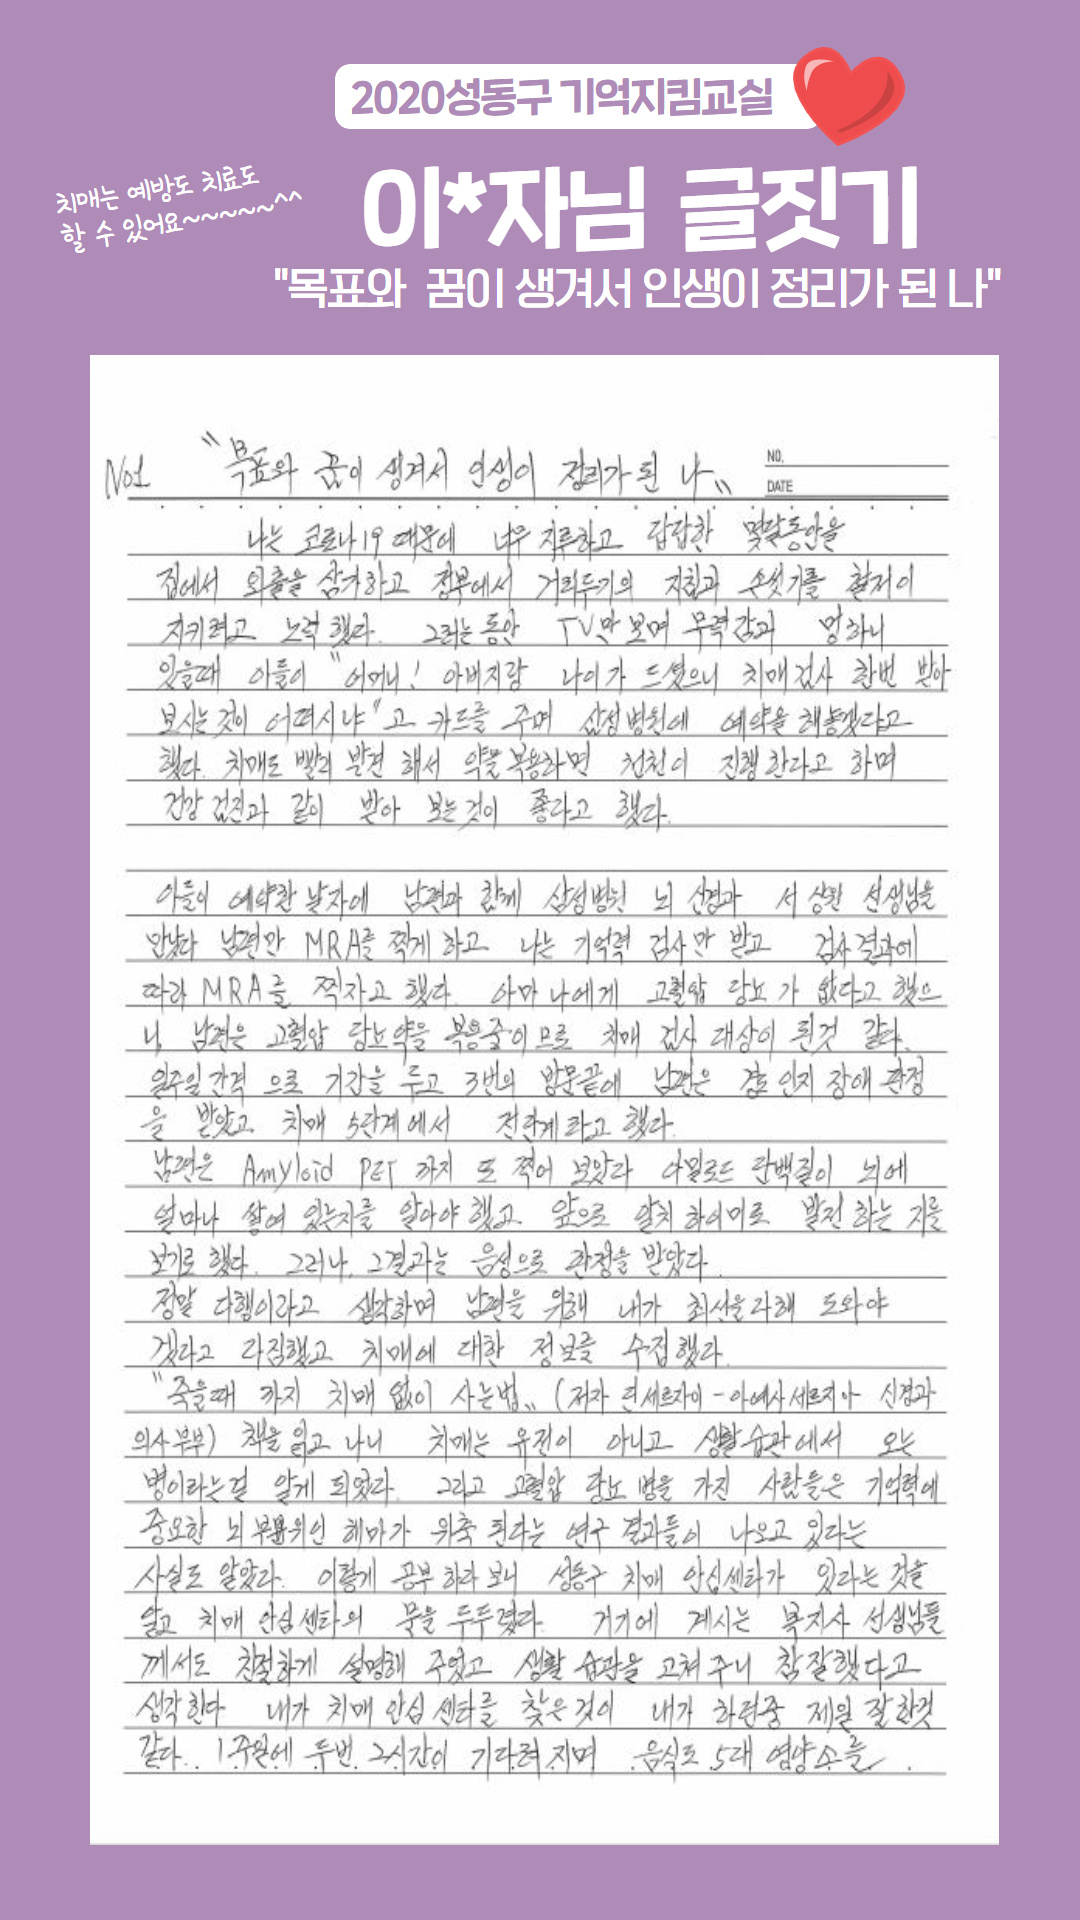 2020성동구 기억지킴교실
치매는 예방도 치료도
할 수 있어요~~~~~^^
이*자님 글짓기
"목표와 꿈이 생겨서 인생이 정리가 된 나"
No1 "목표와 꿈이 생겨서 인생이 정리가 된 나"
NO.
DATE
나는 코로나19 때문에 너무 지루하고 답답한 몇달동안을
집에서 외출을 삼가하고 정부에서 거리두기의 지침과 손씻기를 철저히
지키려고 노력했다. 그러는동안 TV만 보며 무력감과 멍하니
있을때 아들이 "어머니! 아버지랑 나이가 드셨으니 치매검사 한번 받아
보시는것이 어떠시냐"고 카드를 주며 삼성병원에 예약을 해놓겠다고
했다. 치매도 빨리 발견해서 약물복용하면 천천히 진행한다고 하며
건강검진과 같이 받아 보는것이 좋다고 했다.
아들이 예약한 날자에 남편과 함께 삼성병원 뇌 신경과 서상원 선생님을
만났다 남편만 MRA를 찍게 하고 나는 기억력 검사만 받고 검사결과에
따라 MRA를 찍자고 했다. 아마 나에게 고혈압 당뇨가 없다고 했으
니, 남편은 고혈압 당뇨약을 복용중이므로 치매 검사 대상이 된것 같다.
일주일간격 으로 기간을 두고 3번의 방문끝에 남편은 경도인지장애 판정
을 받았고 치매 5단계에서 전단계라고 했다.
남편은 Amyloid PET 까지 또 찍어 보았다 아밀로드 단백질이 뇌에
얼마나 쌓여 있는지를 알아야 했고 앞으로 알치하이머로 발전하는 지를
보기로 했다. 그러나, 그결과는 음성으로 판정을 받았다.
정말 다행이라고 생각하며 남편을 위해 내가 최선을다해 도와야
겠다고 다짐했고 치매에 대한 정보를 수집했다.
"죽을때 까지 치매 없이 사는법" (저자 딘세르자이-아예사세르자이 신경과
의사부부) 책을 읽고 나니 치매는 유전이 아니고 생활습관에서 오는
병이라는걸 알게 되었다. 그리고 고혈압 당뇨 병을 가진 사람들은 기억력에
중요한 뇌 부위인 해마가 위축 된다는 연구 결과들이 나오고 있다는
사실도 알았다. 이렇게 공부하다보니 성동구 치매 안심센타가 있다는 것을
알고 치매 안심센타의 문을 두두렸다. 거기에 계시는 복지사 선생님들
께서도 친절하게 설명해 주었고 생활습관을 고쳐주니 참잘했다고
생각한다 내가 치매 안심 센타를 찾은것이 내가 하던중 제일 잘한것
같다. 1주일에 두번 2시간이 기다려지며 음식도 5대 영양소를